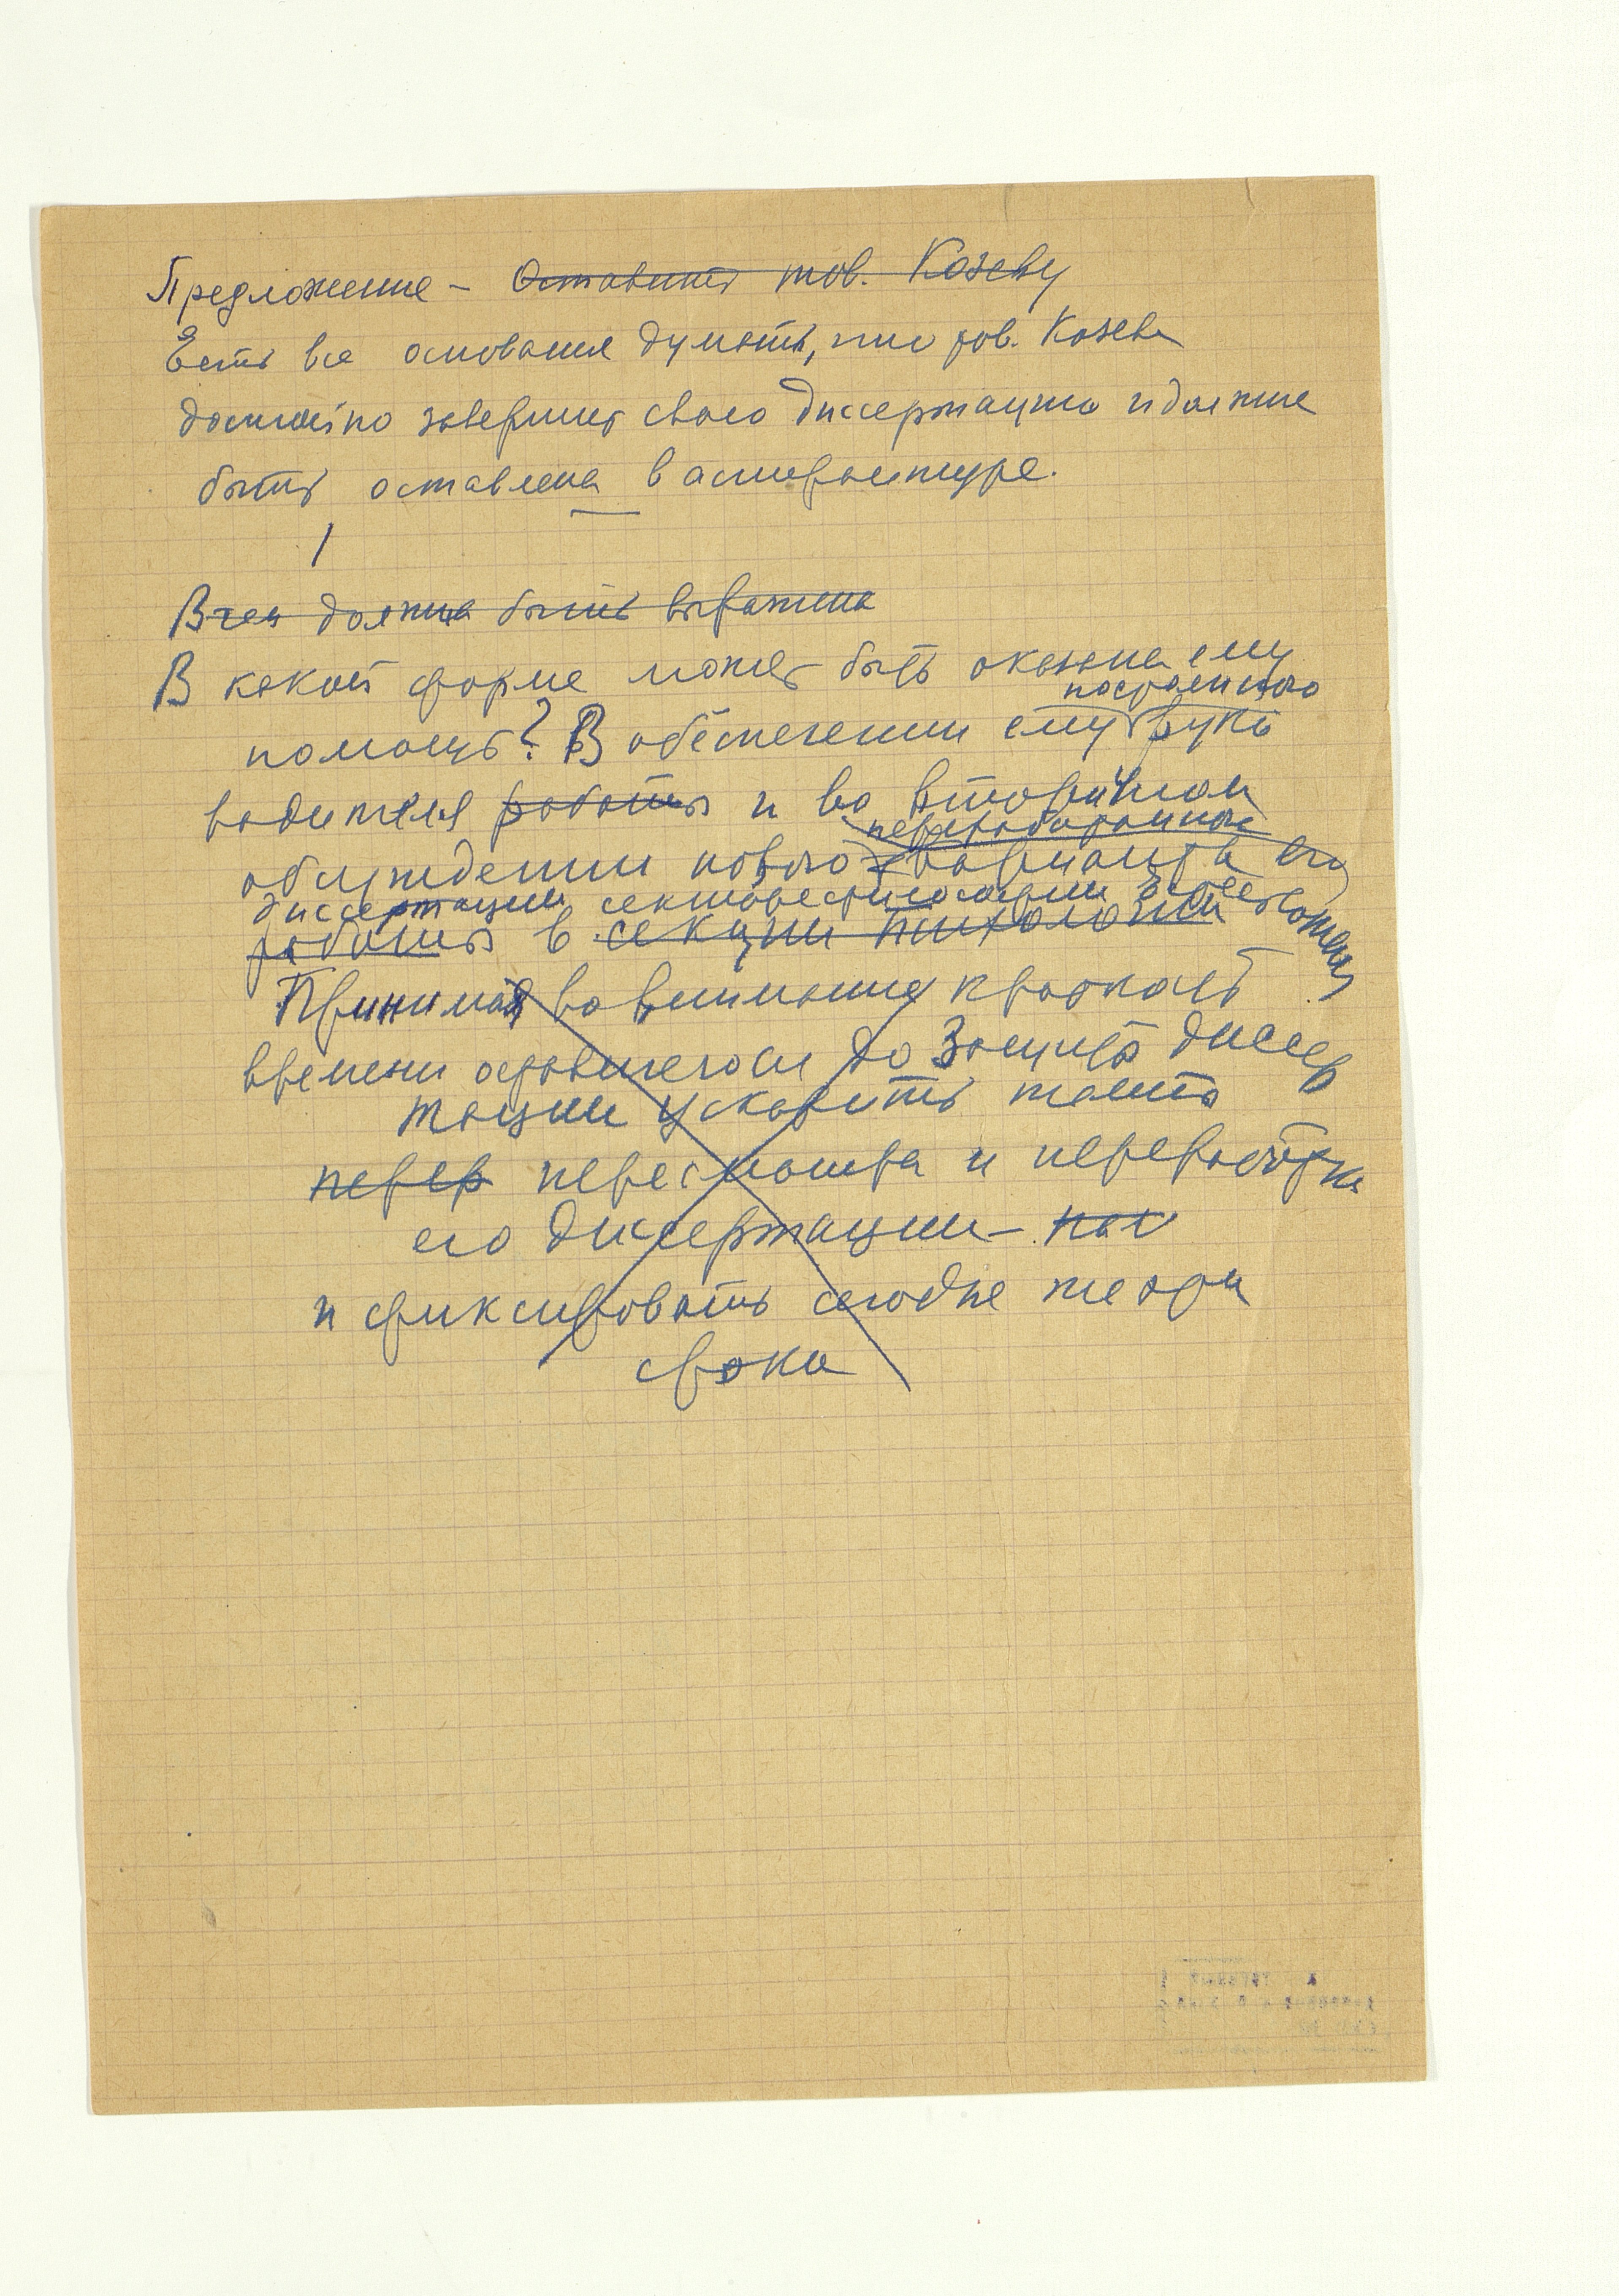 Предложение – Оставить тов. Козеву
Есть все основания думать, что тов. Козева
завершит свою диссертацию и должна
быть оставлена в аспирантуре.
В чем должна быть выражена
В какой форме может быть оказана ему
помощь? В обеспечении ему руко
водителя работы и во вторичном
переработанного
обсуждении нового варианта его
диссертации секторе философии естествознания
работы в секции психологии
Принимая во внимание краткость
времени оставшегося до защиты диссер
тации ускорить темпы
перер пересмотра и переработки
его диссертации –
и фиксировать сегодня же эти
сроки